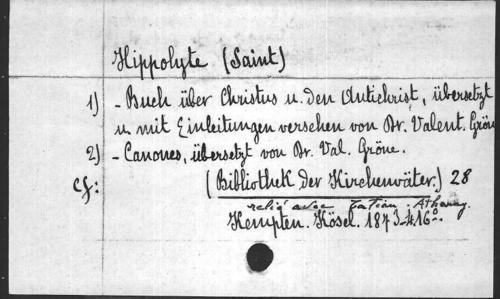 Hippolyte (Saint)
1) - Buch über Christus u. den Antichrist, übersetzt
u. mit Einleitungen versehen von Dr. Valent. Gröne
2) - Canones, übersetzt von Dr. Val. Gröne.
cf: (Bibliothek der Kirchenväter.) 28
relié avec Tatian.
Kempten. Kösel. 1873-4 16°.